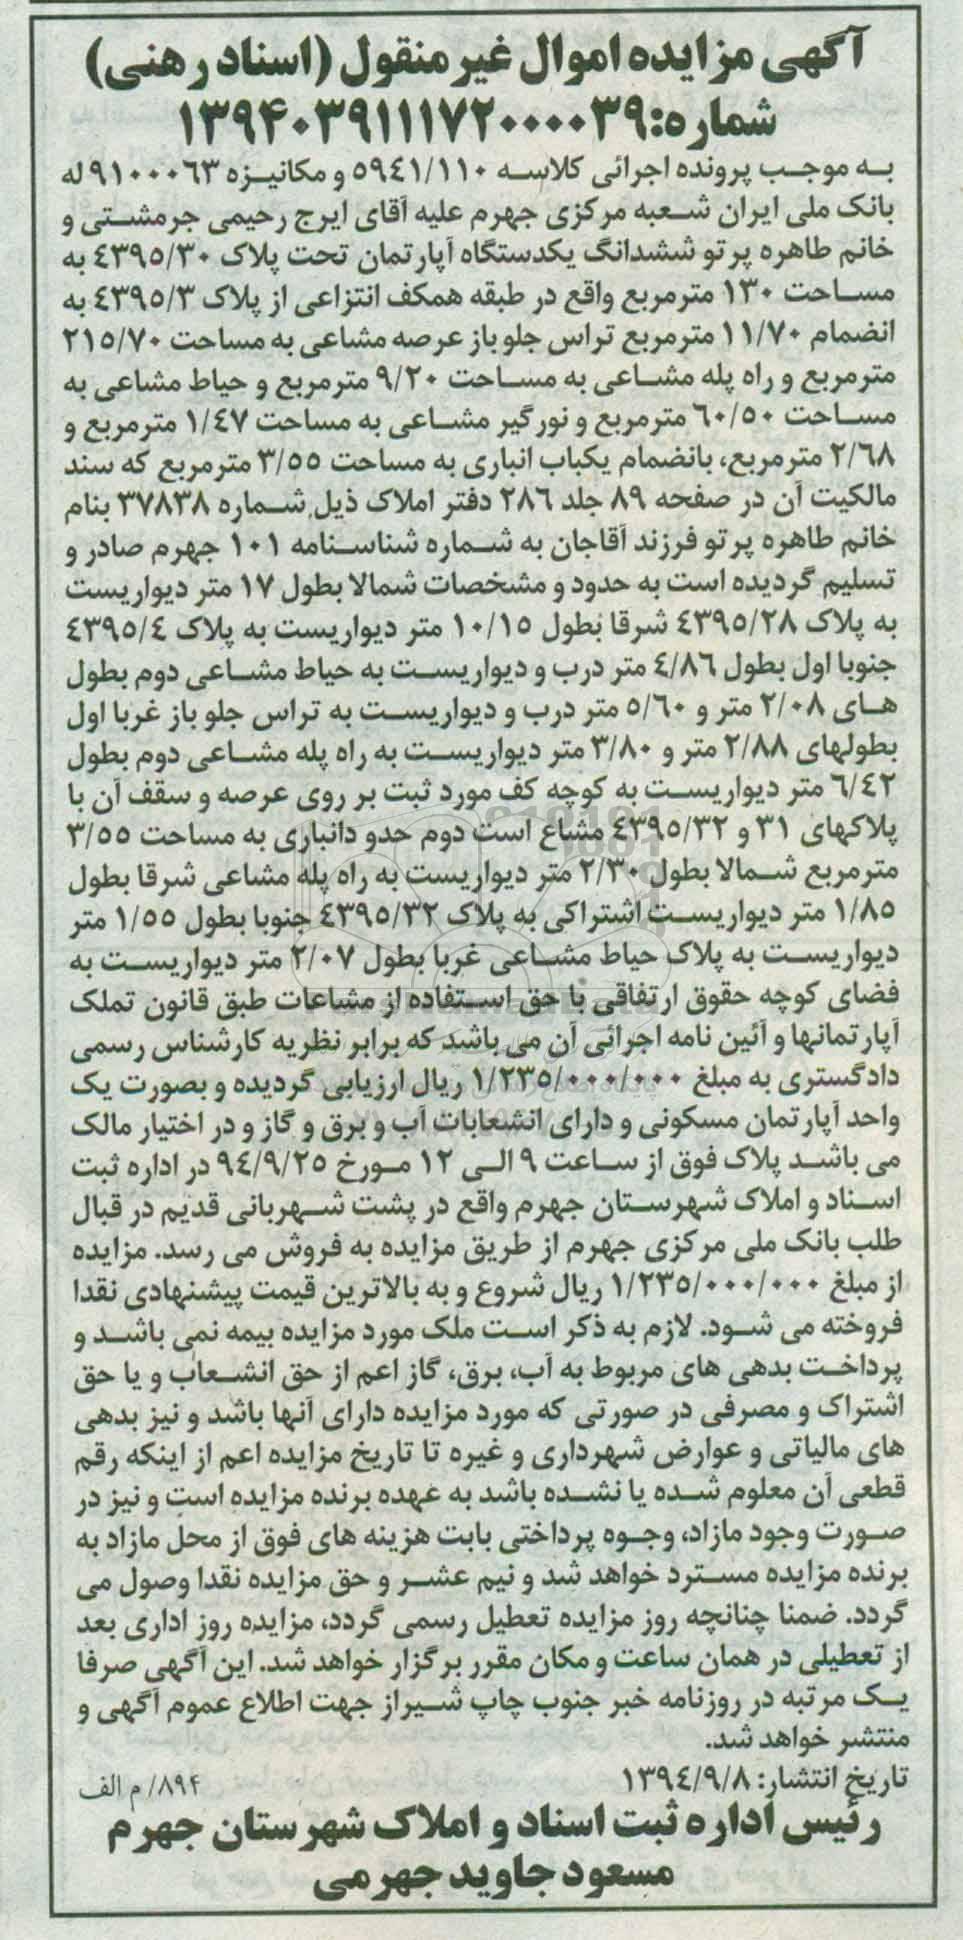 آگهی مزایده اموال غیر منقول (اسناد رهنی)
شماره: ۱۳۹۴۰۳۹۱۱۱۷۲۰۰۰۰۳۹
به موجب پرونده اجرائی کلاسه ۵۹۴۱/۱۱۰ و مکانیزه ۹۱۰۰۰۶۳ له
بانک ملی ایران شعبه مرکزی جهرم علیه آقای ایرج رحیمی جرمشتی و
خانم طاهره پرتو ششدانگ یکدستگاه آپارتمان تحت پلاک ۴۳۹۵/۳۰ به
مساحت ۱۳۰ مترمربع واقع در طبقه همکف انتزاعی از پلاک ۴۳۹۵/۳ به
انضمام ۱۱/۷۰ مترمربع تراس جلو باز عرصه مشاعی به مساحت ۲۱۵/۷۰
مترمربع و راه پله مشاعی به مساحت ۹/۲۰ مترمربع و حیاط مشاعی به
مساحت ۶۰/۵۰ مترمربع و نورگیر مشاعی به مساحت ۱/۴۷ مترمربع و
۲/۶۸ مترمربع، بانضمام یکباب انباری به مساحت ۳/۵۵ مترمربع که سند
مالکیت آن در صفحه ۸۹ جلد ۲۸۶ دفتر املاک ذیل شماره ۳۷۸۳۸ بنام
خانم طاهره پرتو فرزند آقاجان به شماره شناسنامه ۱۰۱ جهرم صادر و
تسلیم گردیده است به حدود و مشخصات شمالا بطول ۱۷ متر دیواریست
به پلاک ۴۳۹۵/۲۸ شرقا بطول ۱۰/۱۵ متر دیواریست به پلاک ۴۳۹۵/۴
جنوبا اول بطول ۴/۸۶ متر درب و دیواریست به حیاط مشاعی دوم بطول
های ۲/۰۸ متر و ۵/۶۰ متر درب و دیواریست به تراس جلو باز غربا اول
بطولهای ۲/۸۸ متر و ۳/۸۰ متر دیواریست به راه پله مشاعی دوم بطول
۶/۴۲ متر دیواریست به کوچه کف مورد ثبت بر روی عرصه و سقف آن با
پلاکهای ۳۱ و ۴۳۹۵/۳۲ مشاع است دوم حدو دانباری به مساحت ۳/۵۵
مترمربع شمالا بطول ۲/۳۰ متر دیواریست به راه پله مشاعی شرقا بطول
۱/۸۵ متر دیواریست اشتراکی به پلاک ۴۳۹۵/۳۲ جنوبا بطول ۱/۵۵ متر
دیواریست به پلاک حیاط مشاعی غربا بطول ۲/۰۷ متر دیواریست به
فضای کوچه حقوق ارتفاقی با حق استفاده از مشاعات طبق قانون تملک
آپارتمانها و آئین نامه اجرائی آن می باشد که برابر نظریه کارشناس رسمی
دادگستری به مبلغ ۱/۲۳۵/۰۰۰/۰۰۰ ریال ارزیابی گردیده و بصورت یک
واحد آپارتمان مسکونی و دارای انشعابات آب و برق و گاز و در اختیار مالک
می باشد پلاک فوق از ساعت ۹ الی ۱۲ مورخ ۹۴/۹/۲۵ در اداره ثبت
اسناد و املاک شهرستان جهرم واقع در پشت شهربانی قدیم در قبال
طلب بانک ملی مرکزی جهرم از طریق مزایده به فروش می رسد. مزایده
از مبلغ ۱/۲۳۵/۰۰۰/۰۰۰ ریال شروع و به بالاترین قیمت پیشنهادی نقدا
فروخته می شود. لازم به ذکر است ملک مورد مزایده بیمه نمی باشد و
پرداخت بدهی های مربوط به آب، برق، گاز اعم از حق انشعاب و یا حق
اشتراک و مصرفی در صورتی که مورد مزایده دارای آنها باشد و نیز بدهی
های مالیاتی و عوارض شهرداری و غیره تا تاریخ مزایده اعم از اینکه رقم
قطعی آن معلوم شده یا نشده باشد به عهده برنده مزایده است و نیز در
صورت وجود مازاد، وجوه پرداختی بابت هزینه های فوق از محل مازاد به
برنده مزایده مسترد خواهد شد و نیم عشر و حق مزایده نقدا وصول می
گردد. ضمنا چنانچه روز مزایده تعطیل رسمی گردد، مزایده روز اداری بعد
از تعطیلی در همان ساعت و مکان مقرر برگزار خواهد شد. این آگهی صرفا
یک مرتبه در روزنامه خبر جنوب چاپ شیراز جهت اطلاع عموم آگهی و
منتشر خواهد شد.
تاریخ انتشار: ۱۳۹۴/۹/۸
۸۹۴/ م الف
رئیس اداره ثبت اسناد و املاک شهرستان جهرم
مسعود جاوید جهرمی